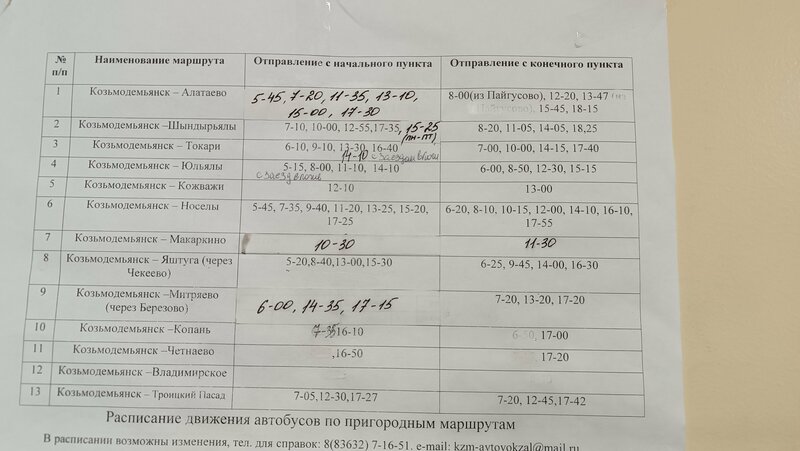 № п/п Наименование маршрута Отправление с начального пункта Отправление с конечного пункта
1 Козьмодемьянск – Алатаево 5-45, 7-20, 11-35, 13-10, 8-00(из Пайгусово), 12-20, 13-47 (из
15-00, 17-30 Пайгусово), 15-45, 18-15
2 Козьмодемьянск –Шындырьялы 7-10, 10-00, 12-55,17-35, 15-25 8-20, 11-05, 14-05, 18,25
(пн-пт)
3 Козьмодемьянск – Токари 6-10, 9-10, 13-30, 16-40 7-00, 10-00, 14-15, 17-40
14-10 с заездом в
4 Козьмодемьянск – Юльялы 5-15, 8-00, 11-10, 14-10 6-00, 8-50, 12-30, 15-15
с заезд
5 Козьмодемьянск – Кожважи 12-10 13-00
6 Козьмодемьянск – Носелы 5-45, 7-35, 9-40, 11-20, 13-25, 15-20, 6-20, 8-10, 10-15, 12-00, 14-10, 16-10,
17-25 17-55
7 Козьмодемьянск – Макаркино 10-30 11-30
8 Козьмодемьянск – Яштуга (через 5-20,8-40,13-00,15-30 6-25, 9-45, 14-00, 16-30
Чекеево)
9 Козьмодемьянск –Митряево 6-00, 14-35, 17-15 7-20, 13-20, 17-20
(через Березово)
10 Козьмодемьянск –Копань 7-35,16-10 6-50, 17-00
11 Козьмодемьянск –Четнаево ,16-50 17-20
12 Козьмодемьянск –Владимирское
13 Козьмодемьянск – Троицкий Пасад 7-05,12-30,17-27 7-20, 12-45,17-42
Расписание движения автобусов по пригородным маршрутам
В расписании возможны изменения, тел. для справок: 8(83632) 7-16-51. e-mail: kzm-avtovokzal@mail.ru